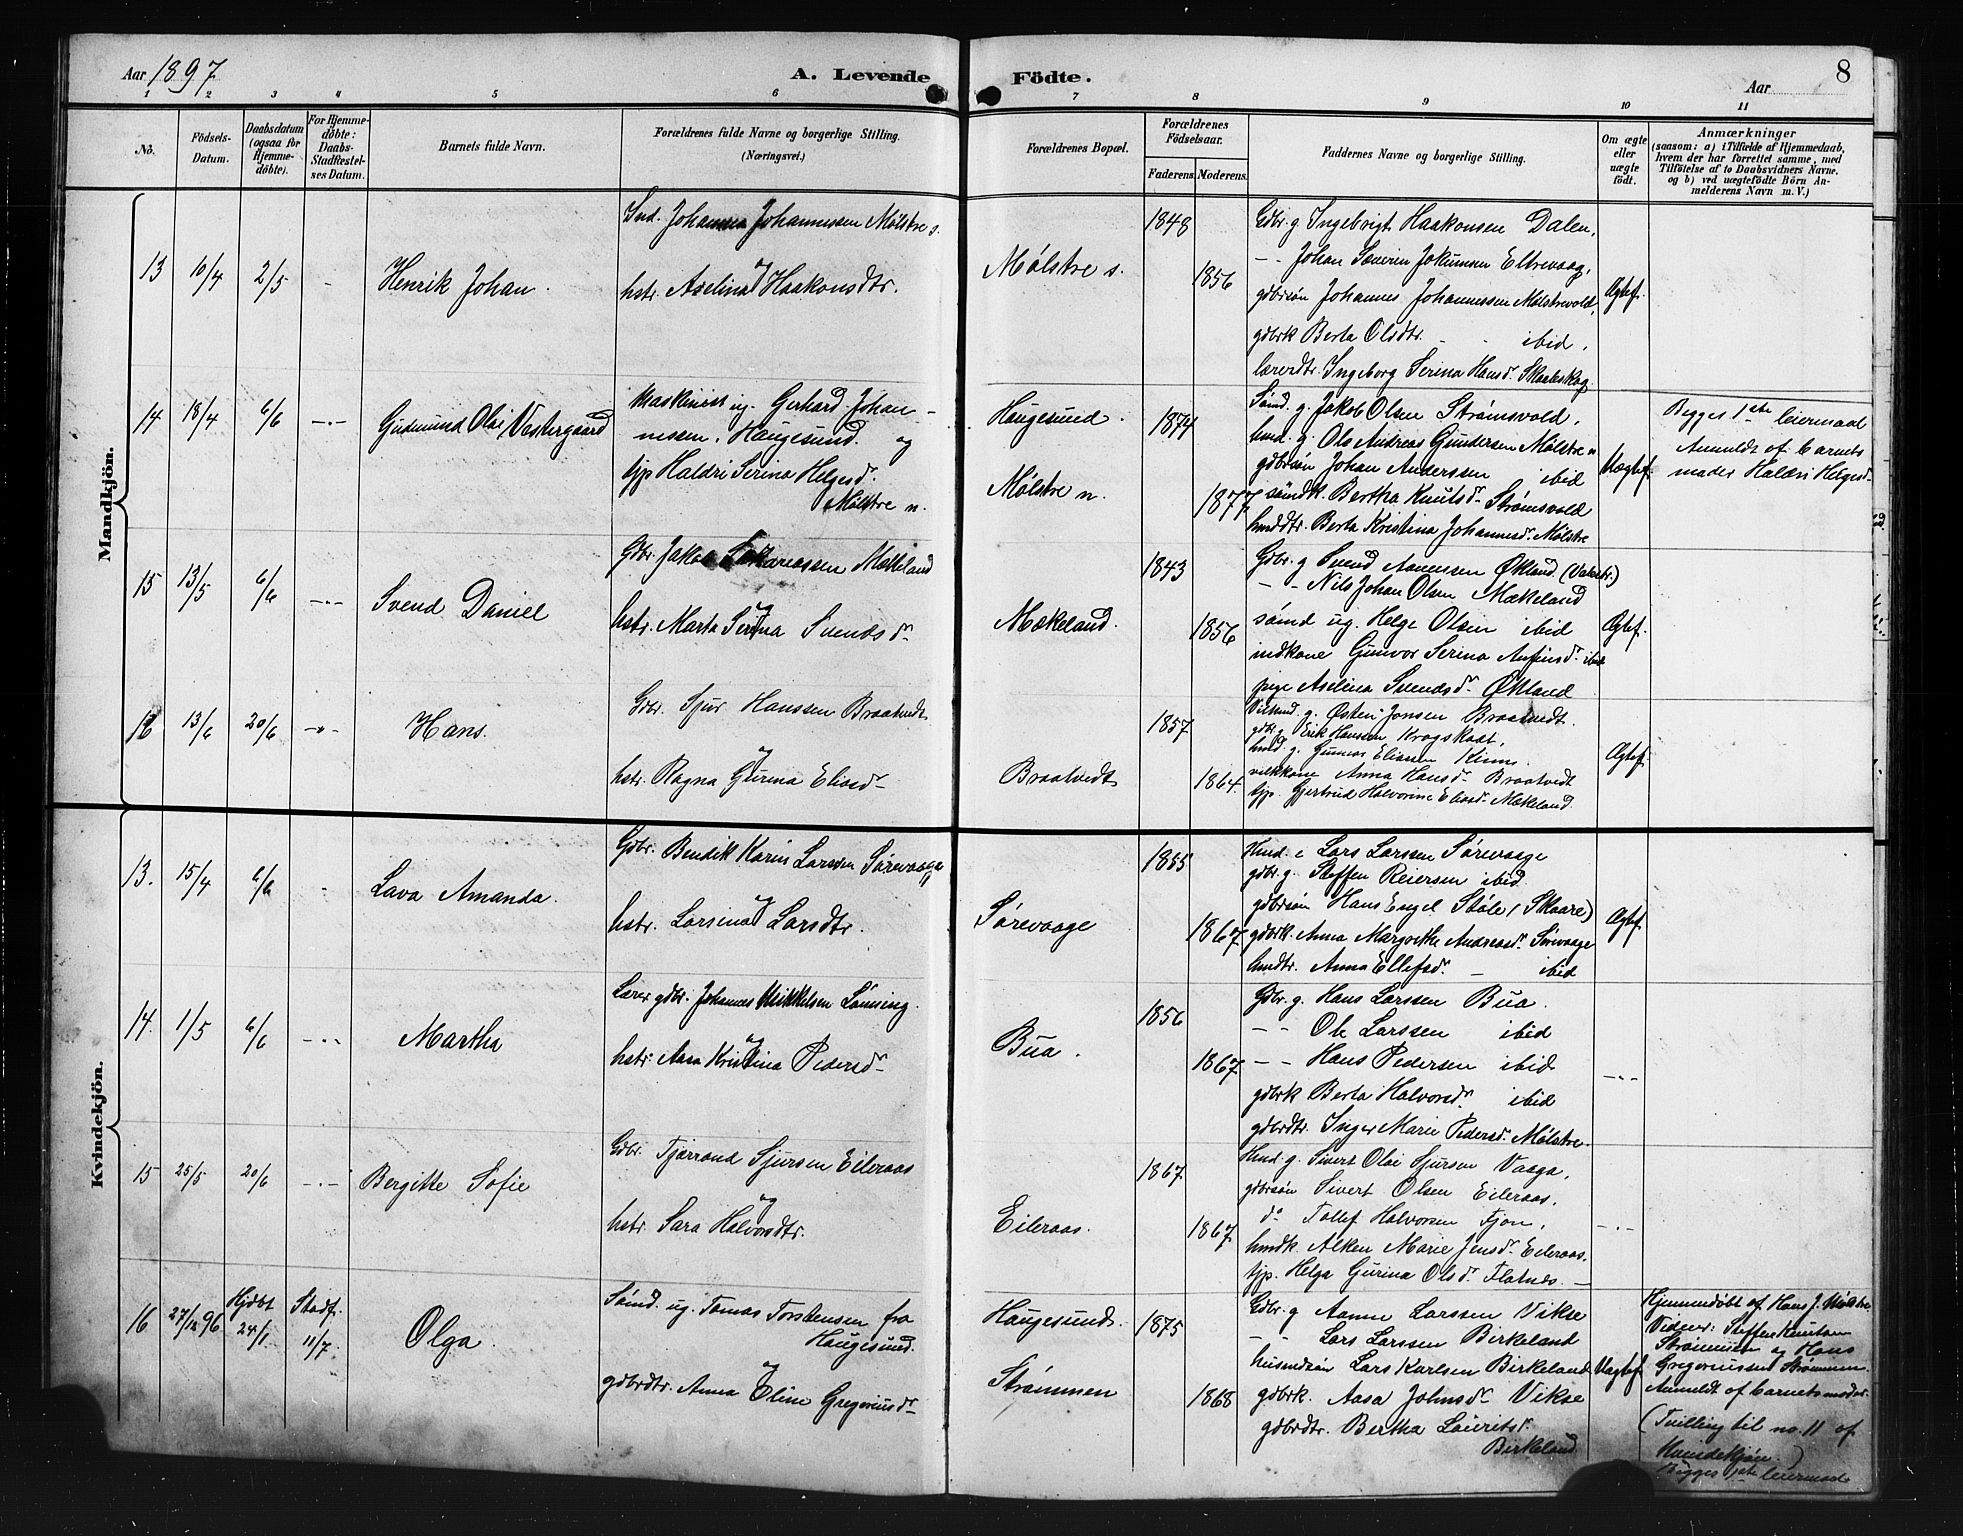 Aar 1897
A. Levende Födte.
Aar
8
1 2 3 4 5 6 7 8 9 10 11
No.
Födsels-Datum.
Daabsdatum (ogsaa for Hjemmedöbte).
For Hjemmedöbte: Daabs-Stadfæstelses Datum.
Barnets fulde Navn.
Forældrenes fulde Navne og borgerlige Stilling.
(Næringsvei.)
Forældrenes Bopæl.
Forældrenes Födselsaar.
Faderens. Moderens.
Faddernes Navne og borgerlige Stilling.
Om ægte eller uægte födt.
Anmærkninger
(saasom: a) i Tilfælde af Hjemmedaab,
hvem der har forrettet samme, med
Tilföielse af to Daabsvidners Navne.
og b) ved uægtefödte Börn An-
melderens Navn m. V.)
Mandkjön.
13 10/4 2/5 - Henrik Johan.
Ind. Johannes Johannessen Mølstre s.
og
hstr. Aselina Haakonsdtr.
Mølstre s.
1848
1856
Gdbr. g Ingebrigt Haakonsen Dalen,
- - Johan Severin Jokumsen Eltrevaag,
gdbrsön Johannes Johannessen Mølstrevold,
gdbrk Berta Olsdtr. - - ibid,
lærerdtr. Ingeborg Serina Hansd. Skaateskog
Ægtef.
14 18/4 6/6 -"- Gudmund Olai Vestergaard
Maskinist ug. Gerhard Johan-
nessen. Haugesund. og
tjp Haldri Serina Helgesd.
Mølstre n.
Haugesund.
Mølstre n.
1874
1877
Sömd. g. Jakob Olsen Strømsvold,
hmd. g. Ole Andreas Gundersen Mølstre n
gdbrsön Johan Anderssen ibid
sömdk. Bertha Knutsd. Strømsvold
hmddtr. Berta Kristina Johannesd. Mølstre
Uægtef.
Begges 1ste leiermaal
Anmeldt af barnets
moder Haldri Helgesd.
15 13/5 6/6 -"- Svend Daniel
Gdbr. Jakob Sakariassen Mækeland
og
hstr. Marta Serina Svendsd.
Mækeland.
1843
1856
Gdbr. g Svend Aanensen Økland
- - Nils Johan Olsen Mækeland
sömd ug. Helge Olsen ibid
indkone Gunvor Serina Anfinsd. ibid
pige Aselina Svendsd. Økland
Ægtef.
16 13/6 20/6 -"- Hans.
Gdbr. Sjur Hanssen Braatvedt
og
hstr. Ragna Gurina Eliasd.
Braatvedt
1857
1864.
g. Østen Jonsen Braatvedt.
gdbr g Erik Hansen Krogskadt,
hmd. g. Gunnar Eliasen Kinns.
Anna Hansd. Braatvedt
tjp. Gjertrud Halvorine Eliasd. Mækeland.
Ægtef.
Kvindekjön.
13. 15/4 6/6 - Lava Amanda.
Gdbr. Bendik Karin Larssen Sørevaage
og
hstr. Larsina Larsdtr.
Sørevaage
1855
1867
Hmd. e Lars Larssen Sørevaage
gdbr. g. Steffen Reiersen ibid.
gdbrsön Hans Engel Støle (Skaare)
gdbrk. Anna Margrethe Andreasd. Sørevaage
hmdtr. Anna Ellefsd. - ibid
Ægtef.
14. 1/5 6/6 -"- Martha
Lærer gdbr. Johannes Mikkelsen Lønning.
og
hstr. Aasa Kristina Pedersd.
Bua.
1856
1867
Gdbr. g. Hans Larssen Bua.
- - Ole Larssen ibid
- - Hans Pedersen ibid
gdbrk Berta Halvorsd. ibid
gdbrdtr. Inger Marie Pedersd. Mølstre.
-"-
15 25/5 20/6 -"- Bergitte Sofie
Gdbr. Tjærrand Sjursen Eileraas
og
hstr. Sara Halvorsdtr.
Eileraas.
1867
1867
Hmd. g. Sivert Olai Sjursen Vaaga,
gdbrsön Sivert Olsen Eileraas.
do Tollef Halvorsen Fjon,
hmdk. Alken Marie Jensd. Eileraas.
tjp. Helga Gurina Olsd. Flatnes.
-"-
16 27/12 96 Hjdbt 24/1 Stadf. 11/7 Olga.
Sömd. ug. Tomas Torstensen fra
Haugesund.
og
gdbrdtr. Anna Oline Gregoriusd.
Haugesund.
Strømmen
1875
1868
Gdbr. g Aanne Larssen Vikse
- - Lars Larssen Birkeland
husmdsön Lars Karlsen Birkeland
gdbrk. Aasa Johnsd. Vikse
gdbrdtr. Bertha Lauritsd.
Birkeland
Uægtef.
Hjemmedöbt af Hans J. Mølstre
Vidner: Steffen Knutsen
Strømmen og Hans
Gregoriussen Strømmen.
Anmeldt af barnets moder.
(Tvilling til no. 11 af
Kvindekjön.)
Begges 1ste leiermaal